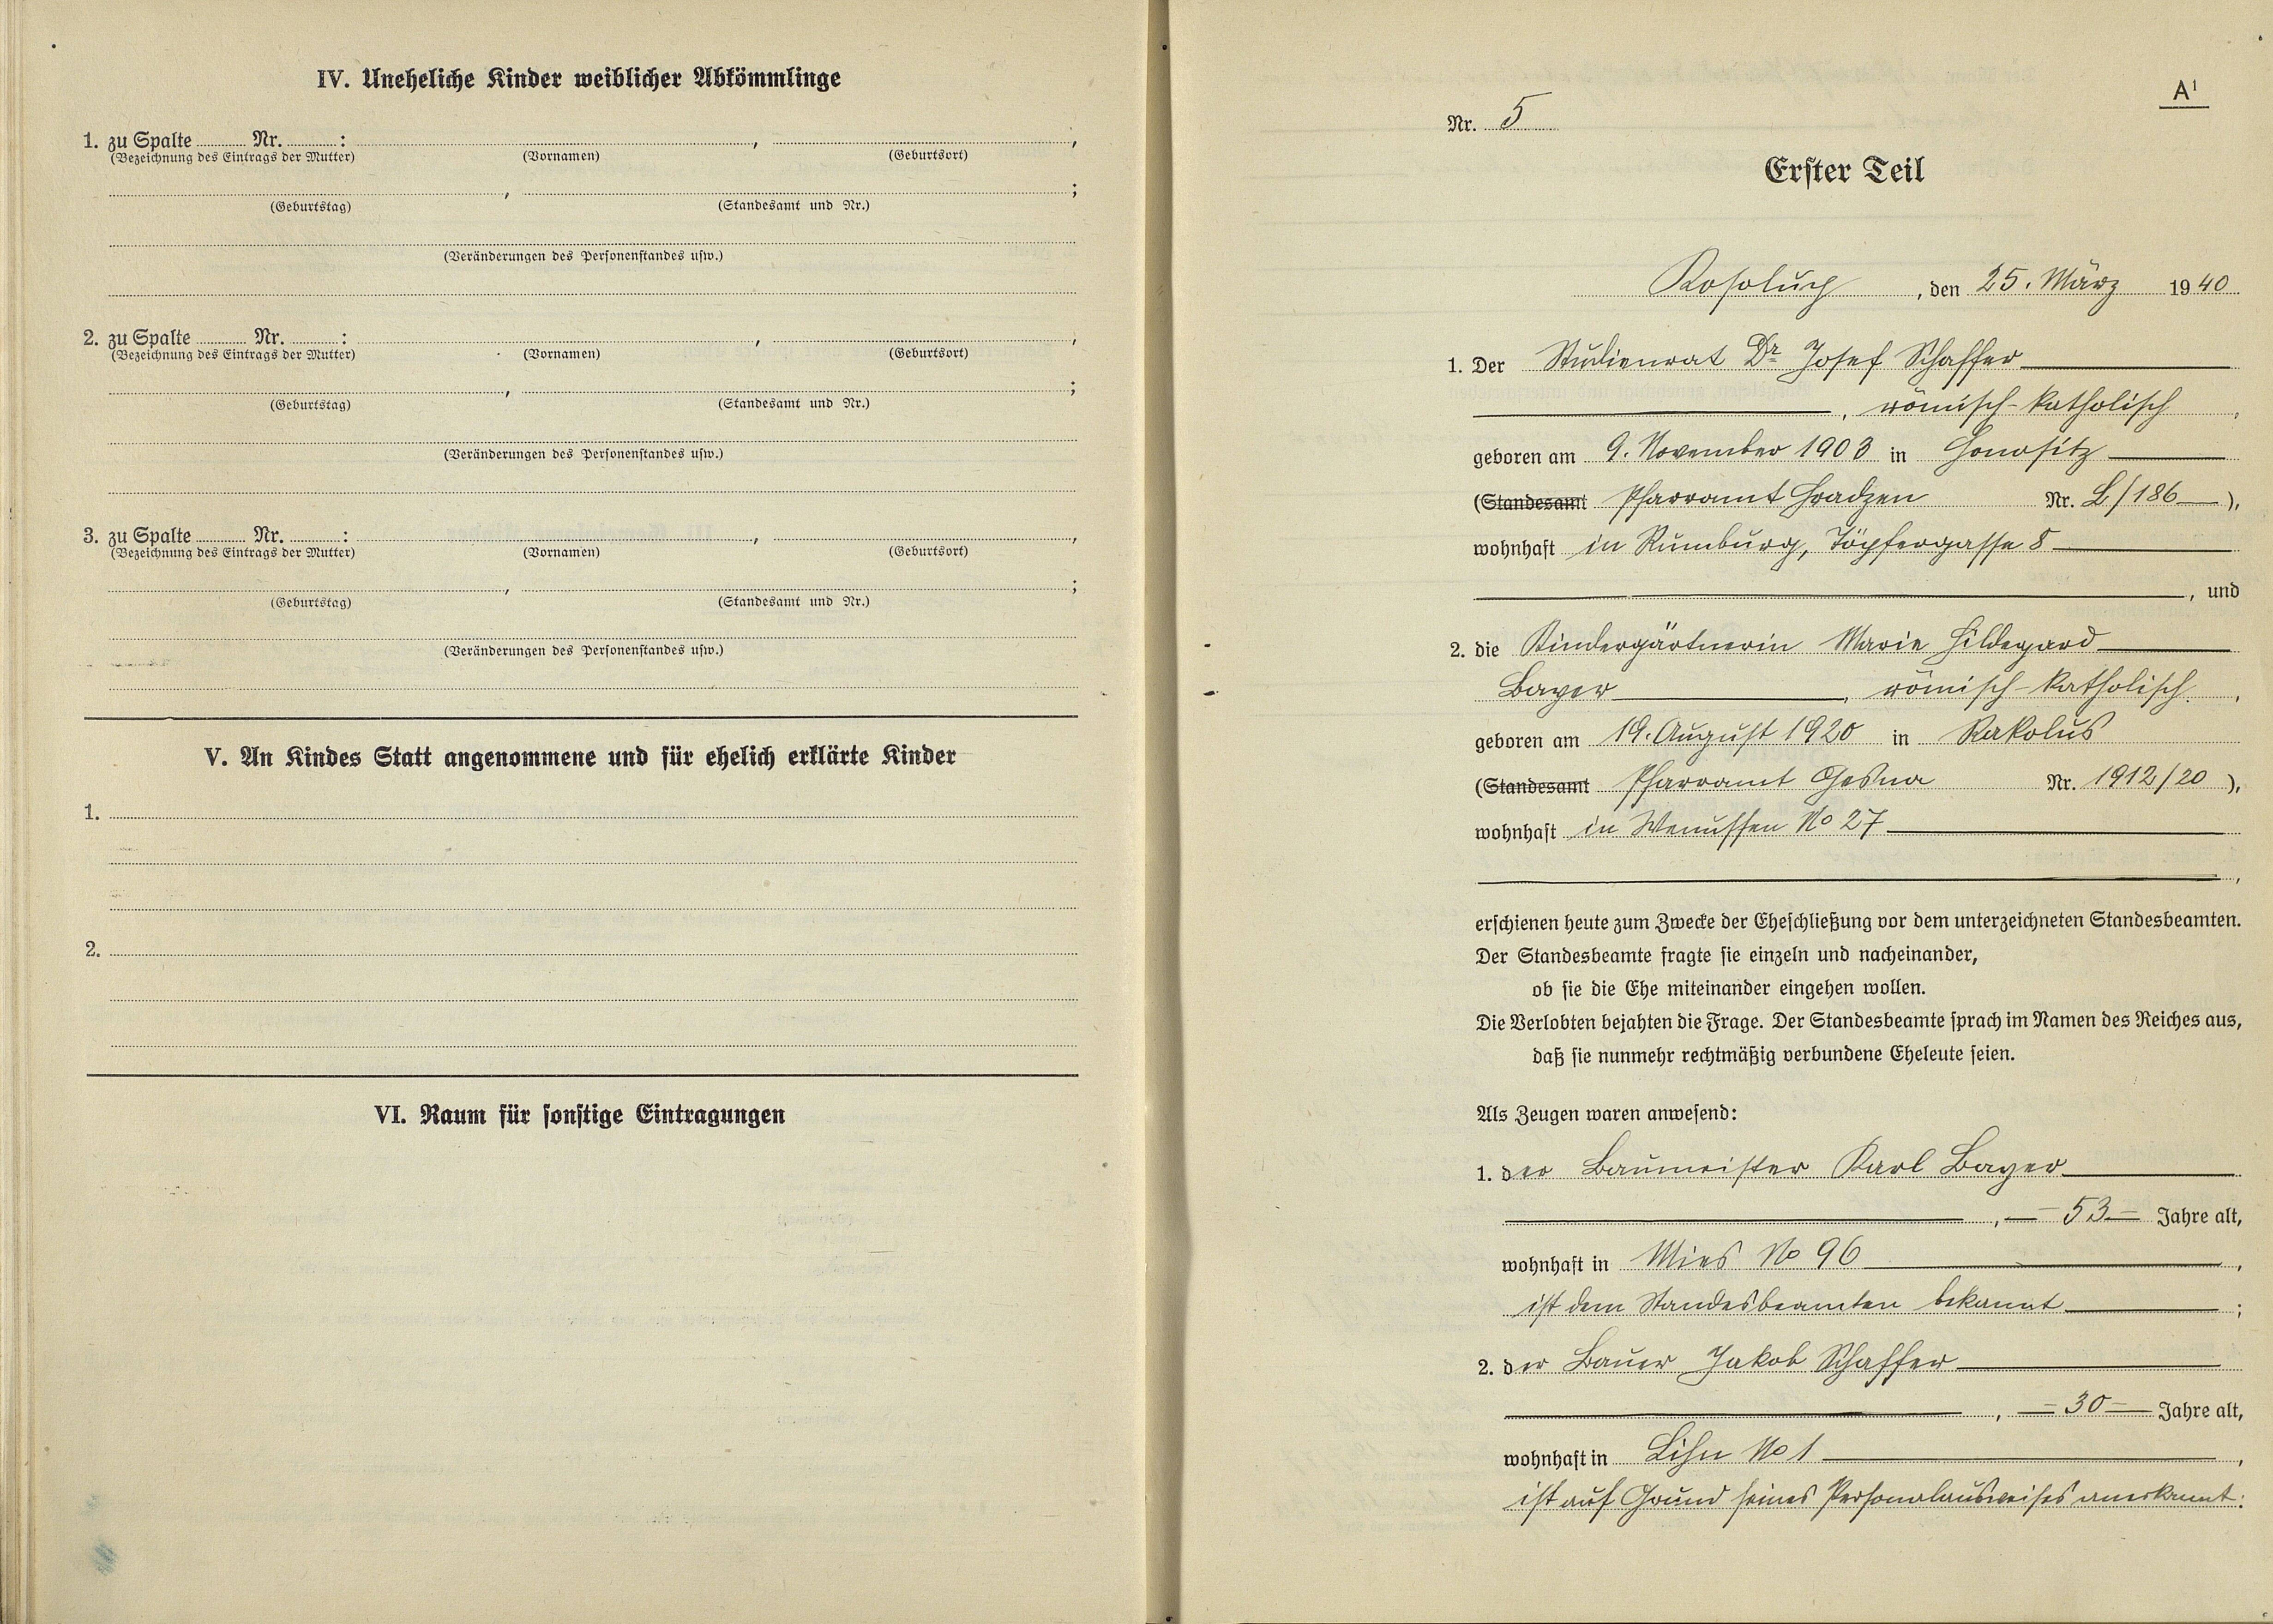 IV. Uneheliche Kinder weiblicher Abkömmlinge
1. zu Spalte ........ Nr. ........ : ........ , ........ ,
(Bezeichnung des Eintrags der Mutter) (Vornamen) (Geburtsort)
........ , ........ ;
(Geburtstag) (Standesamt und Nr.)
(Veränderungen des Personenstandes usw.)
2. zu Spalte ........ Nr. ........ : ........ , ........ ,
(Bezeichnung des Eintrags der Mutter) (Vornamen) (Geburtsort)
........ , ........ ;
(Geburtstag) (Standesamt und Nr.)
(Veränderungen des Personenstandes usw.)
3. zu Spalte ........ Nr. ........ : ........ , ........ ,
(Bezeichnung des Eintrags der Mutter) (Vornamen) (Geburtsort)
........ , ........ ;
(Geburtstag) (Standesamt und Nr.)
(Veränderungen des Personenstandes usw.)
V. An Kindes Statt angenommene und für ehelich erklärte Kinder
1.
2.
VI. Raum für sonstige Eintragungen
A¹
Nr. 5
Erster Teil
, den 25. März 1940
1. Der Studienrat Dr Josef Schaffer
, römisch-katholisch ,
geboren am 9. November 1903 in Honositz
(Standesamt Pfarramt Hradzen Nr. L/186 ),
wohnhaft in Rumburg, Töpfergasse 8
, und
2. die Kindergärtnerin Marie Hildegard
Bayer , römisch-katholisch ,
geboren am 19. August 1920 in Rakolus
(Standesamt Pfarramt Nr. 1912/20 ),
wohnhaft in Wenussen No 27
,
erschienen heute zum Zwecke der Eheschließung vor dem unterzeichneten Standesbeamten.
Der Standesbeamte fragte sie einzeln und nacheinander,
ob sie die Ehe miteinander eingehen wollen.
Die Verlobten bejahten die Frage. Der Standesbeamte sprach im Namen des Reiches aus,
daß sie nunmehr rechtmäßig verbundene Eheleute seien.
Als Zeugen waren anwesend:
1. der Baumeister Karl Bayer
, 53 Jahre alt,
wohnhaft in Mies No 96 ,
ist dem Standesbeamten bekannt ;
2. der Bauer Jakob Schaffer
, 30 Jahre alt,
wohnhaft in Lihn No 1 ,
ist auf Grund seines Personalausweises anerkannt.